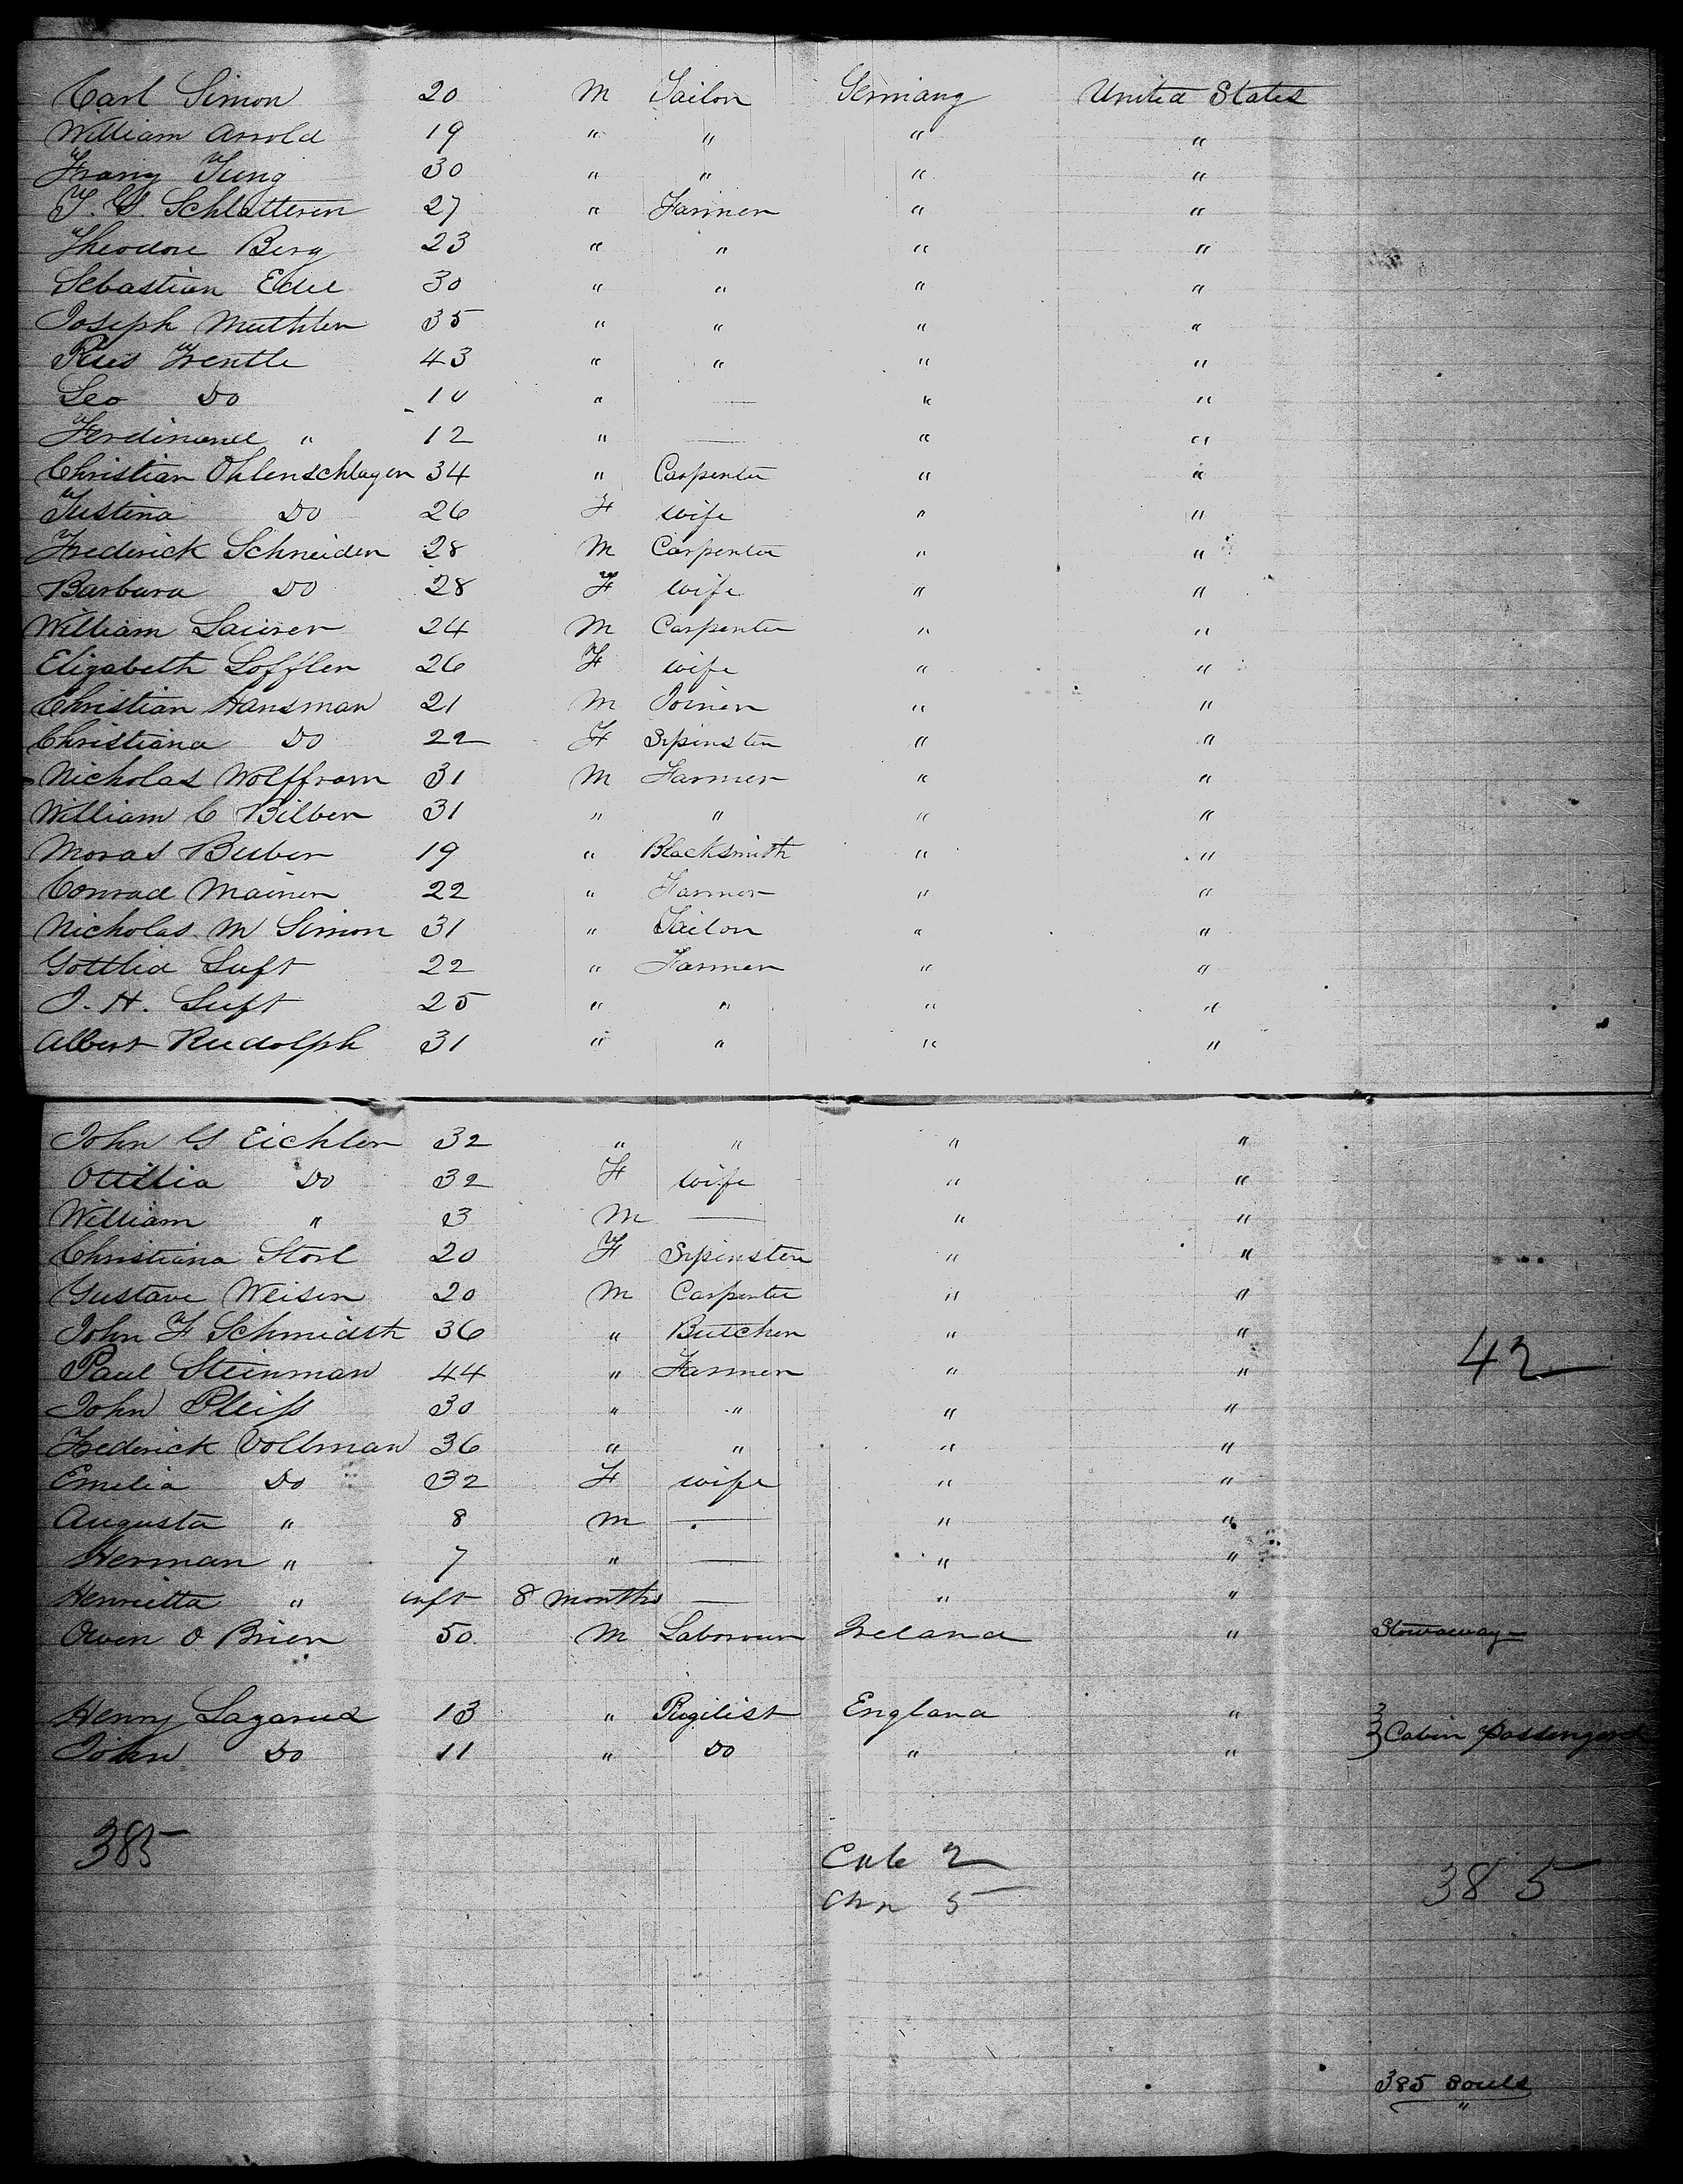 Carl Simon 20 M Tailor Germany United States
William Arnold 19 " " " "
Franz Jung 30 " " " "
J. G. Schlatterer 27 " Farmer " "
Theodore Berg 23 " " " "
Sebastian Edel 30 " " " "
Joseph Muthler 35 " " " "
Pius Trentle 43 " " " "
Leo Do 10 " — " "
Ferdinand " 12 " — " "
Christian Ohlenschlager 34 " Carpenter " "
Justina Do 26 F wife " "
Frederick Schneider 28 M Carpenter " "
Barbara Do 28 F wife " "
William Saurer 24 M Carpenter " "
Elizabeth Loffler 26 F wife " "
Christian Hansman 21 M Joiner " "
Christiana Do 22 F Spinster " "
Nicholas Wolffram 31 M Farmer " "
William C Bilber 31 " " " "
Moras Buber 19 " Blacksmith " "
Conrad Mainer 22 " Farmer " "
Nicholas M Simon 31 " Tailor " "
Gottlid Luft 22 " Farmer " "
J. H. Luft 25 " " " "
Albert Rudolph 31 " " " "
John G Eichler 32 " " " "
Ottilia Do 32 F wife " "
William " 3 M — " "
Christiana Storl 20 F Spinster " "
Gustave Weiser 20 M Carpenter " "
John F Schmidth 36 " Butcher " "
Paul Steinman 44 " Farmer " " 42
John Pleiss 30 " " " "
Frederick Vollman 36 " " " "
Emelia Do 32 F wife " "
Augusta " 8 M — " "
Herman " 7 " — " "
Henrietta " inft 8 months — " "
Owen O Brien 50 M Labourer Ireland " Stowaway
Henry Lazarus 13 " Pugilist England "
John Do 11 " Do " " } Cabin Passengers
385
Cab 2
Chn 5 385
385 Souls
"